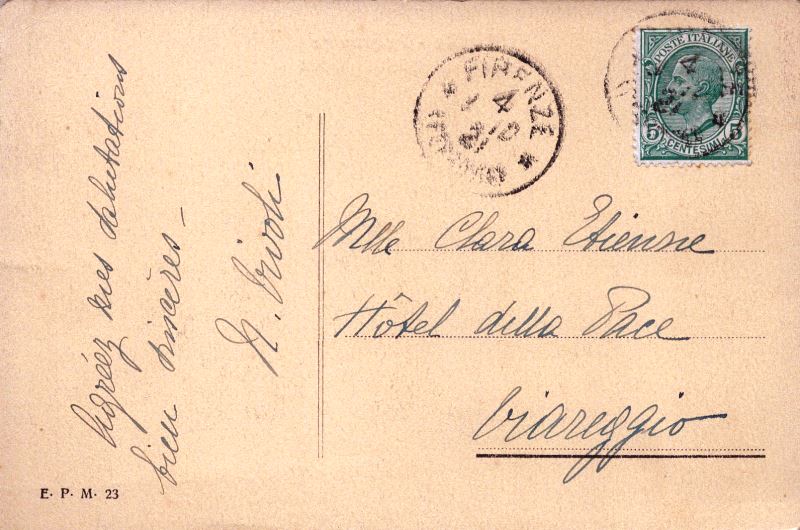 Agréez mes salutations
bien sincères –
N. Tivoli
FIRENZE
4
POSTE ITALIANE
5 5
CENTESIMI
Mlle Clara Etienne
Hôtel della Pace
Viareggio
E. P. M. 23